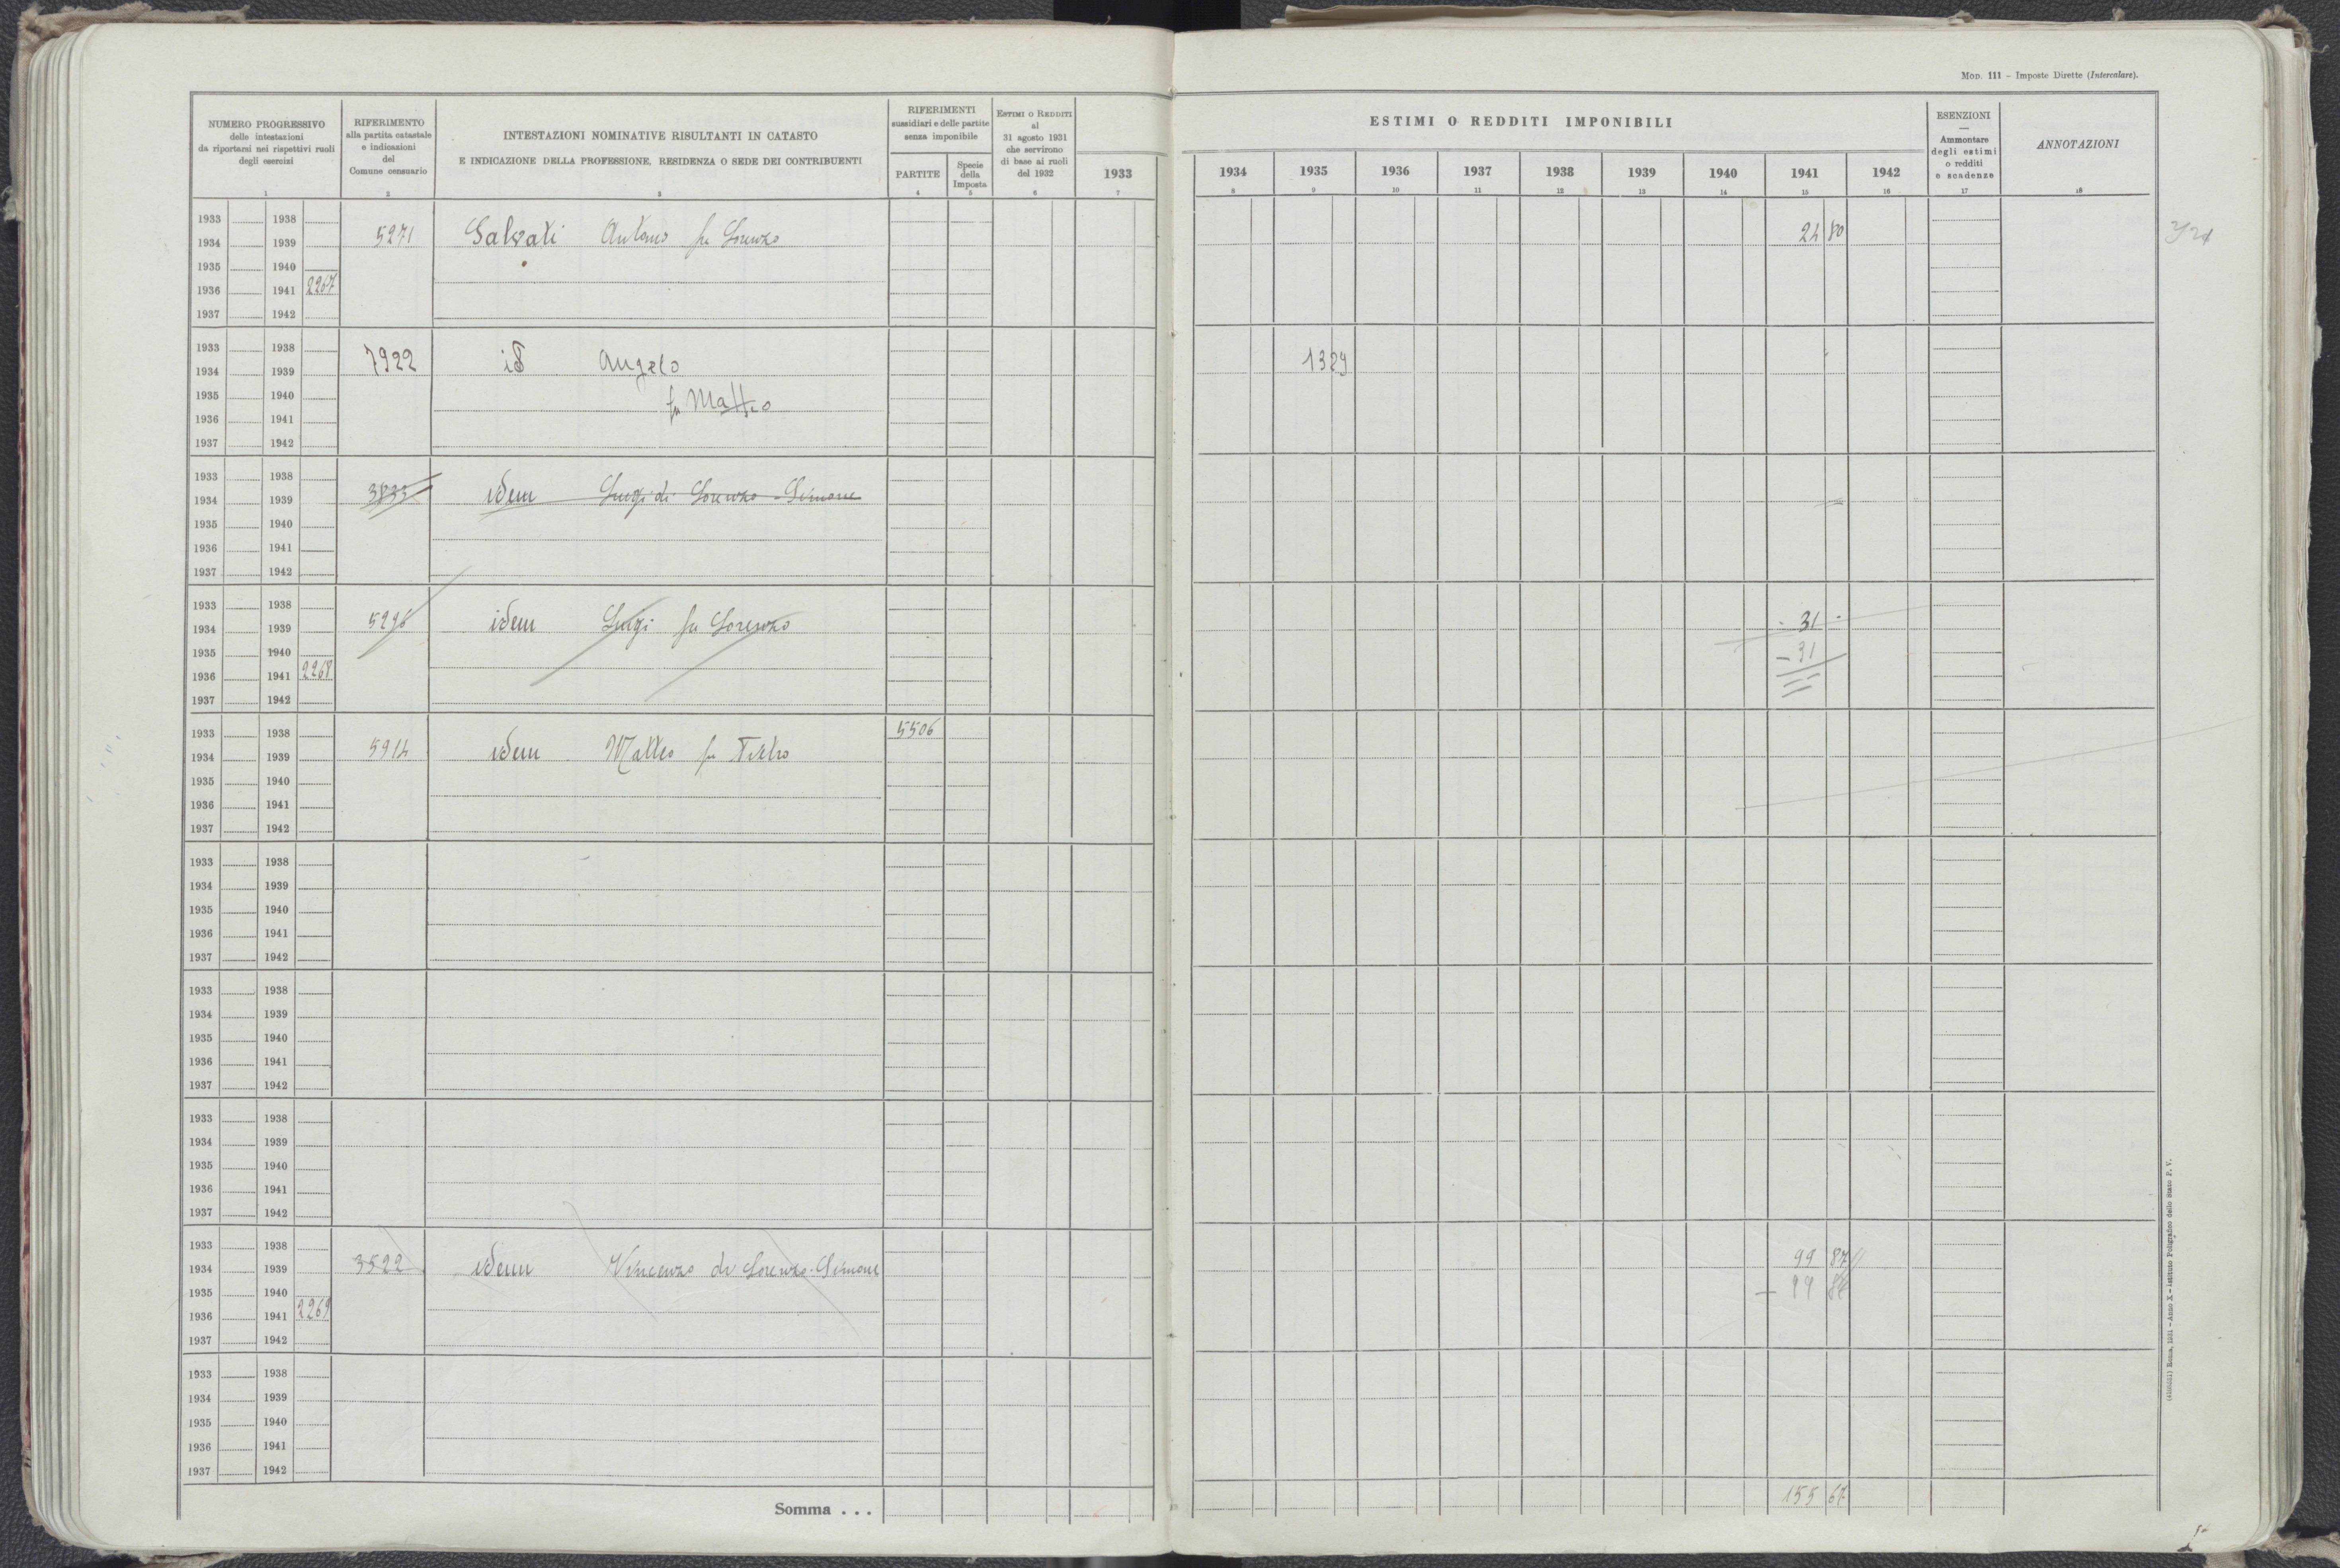 MOD. 111 - Imposte Dirette (Intercalare).
NUMERO PROGRESSIVO
delle intestazioni
da riportarsi nei rispettivi ruoli
degli esercizi
1
RIFERIMENTO
alla partita catastale
e indicazioni
del
Comune censuario
2
INTESTAZIONI NOMINATIVE RISULTANTI IN CATASTO
E INDICAZIONE DELLA PROFESSIONE, RESIDENZA O SEDE DEI CONTRIBUENTI
3
RIFERIMENTI
sussidiari e delle partite
senza imponibile
PARTITE
4
Specie
della
Imposta
5
ESTIMI O REDDITI
al
31 agosto 1931
che servirono
di base ai ruoli
del 1932
6
ESTIMI O REDDITI IMPONIBILI
1933
7
1934
8
1935
9
1936
10
1937
11
1938
12
1939
13
1940
14
1941
15
1942
16
ESENZIONI
—
Ammontare
degli estimi
o redditi
e scadenze
17
ANNOTAZIONI
18
1933 1938
1934 1939 5271 Salvati Antonio fu Lorenzo 24 80
1935 1940
1936 1941 2267
1937 1942
1933 1938
1934 1939 7922 id Angelo 1329
1935 1940 fu Matteo
1936 1941
1937 1942
1933 1938
1934 1939 3833 idem Luigi di Lorenzo-Simone
1935 1940
1936 1941
1937 1942
1933 1938
1934 1939 5296 idem Luigi fu Lorenzo 31 -
1935 1940 - 31
1936 1941 2268
1937 1942
1933 1938 5506
1934 1939 5914 idem Matteo fu Pietro
1935 1940
1936 1941
1937 1942
1933 1938
1934 1939
1935 1940
1936 1941
1937 1942
1933 1938
1934 1939
1935 1940
1936 1941
1937 1942
1933 1938
1934 1939
1935 1940
1936 1941
1937 1942
1933 1938
1934 1939 3522 idem Vincenzo di Lorenzo-Simone 99 87
1935 1940 - 99 87
1936 1941 2269
1937 1942
1933 1938
1934 1939
1935 1940
1936 1941
1937 1942
Somma . . . 155 67
Roma, 1931 - Anno X - Istituto Poligrafico dello Stato P. V.